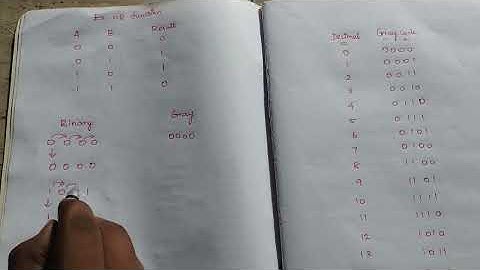 Ex OR function
A B Result
0 0 0
0 1 1
1 0 1
1 1 0
Binary Gray
0 0 0 0 0000
0 0 0 0
Decimal Gray Code
0 0000
1 0001
2 0011
3 0010
4 0110
5 0111
6 0101
7 0100
8 1100
9 1101
10 1111
11 1110
12 1010
13 1011